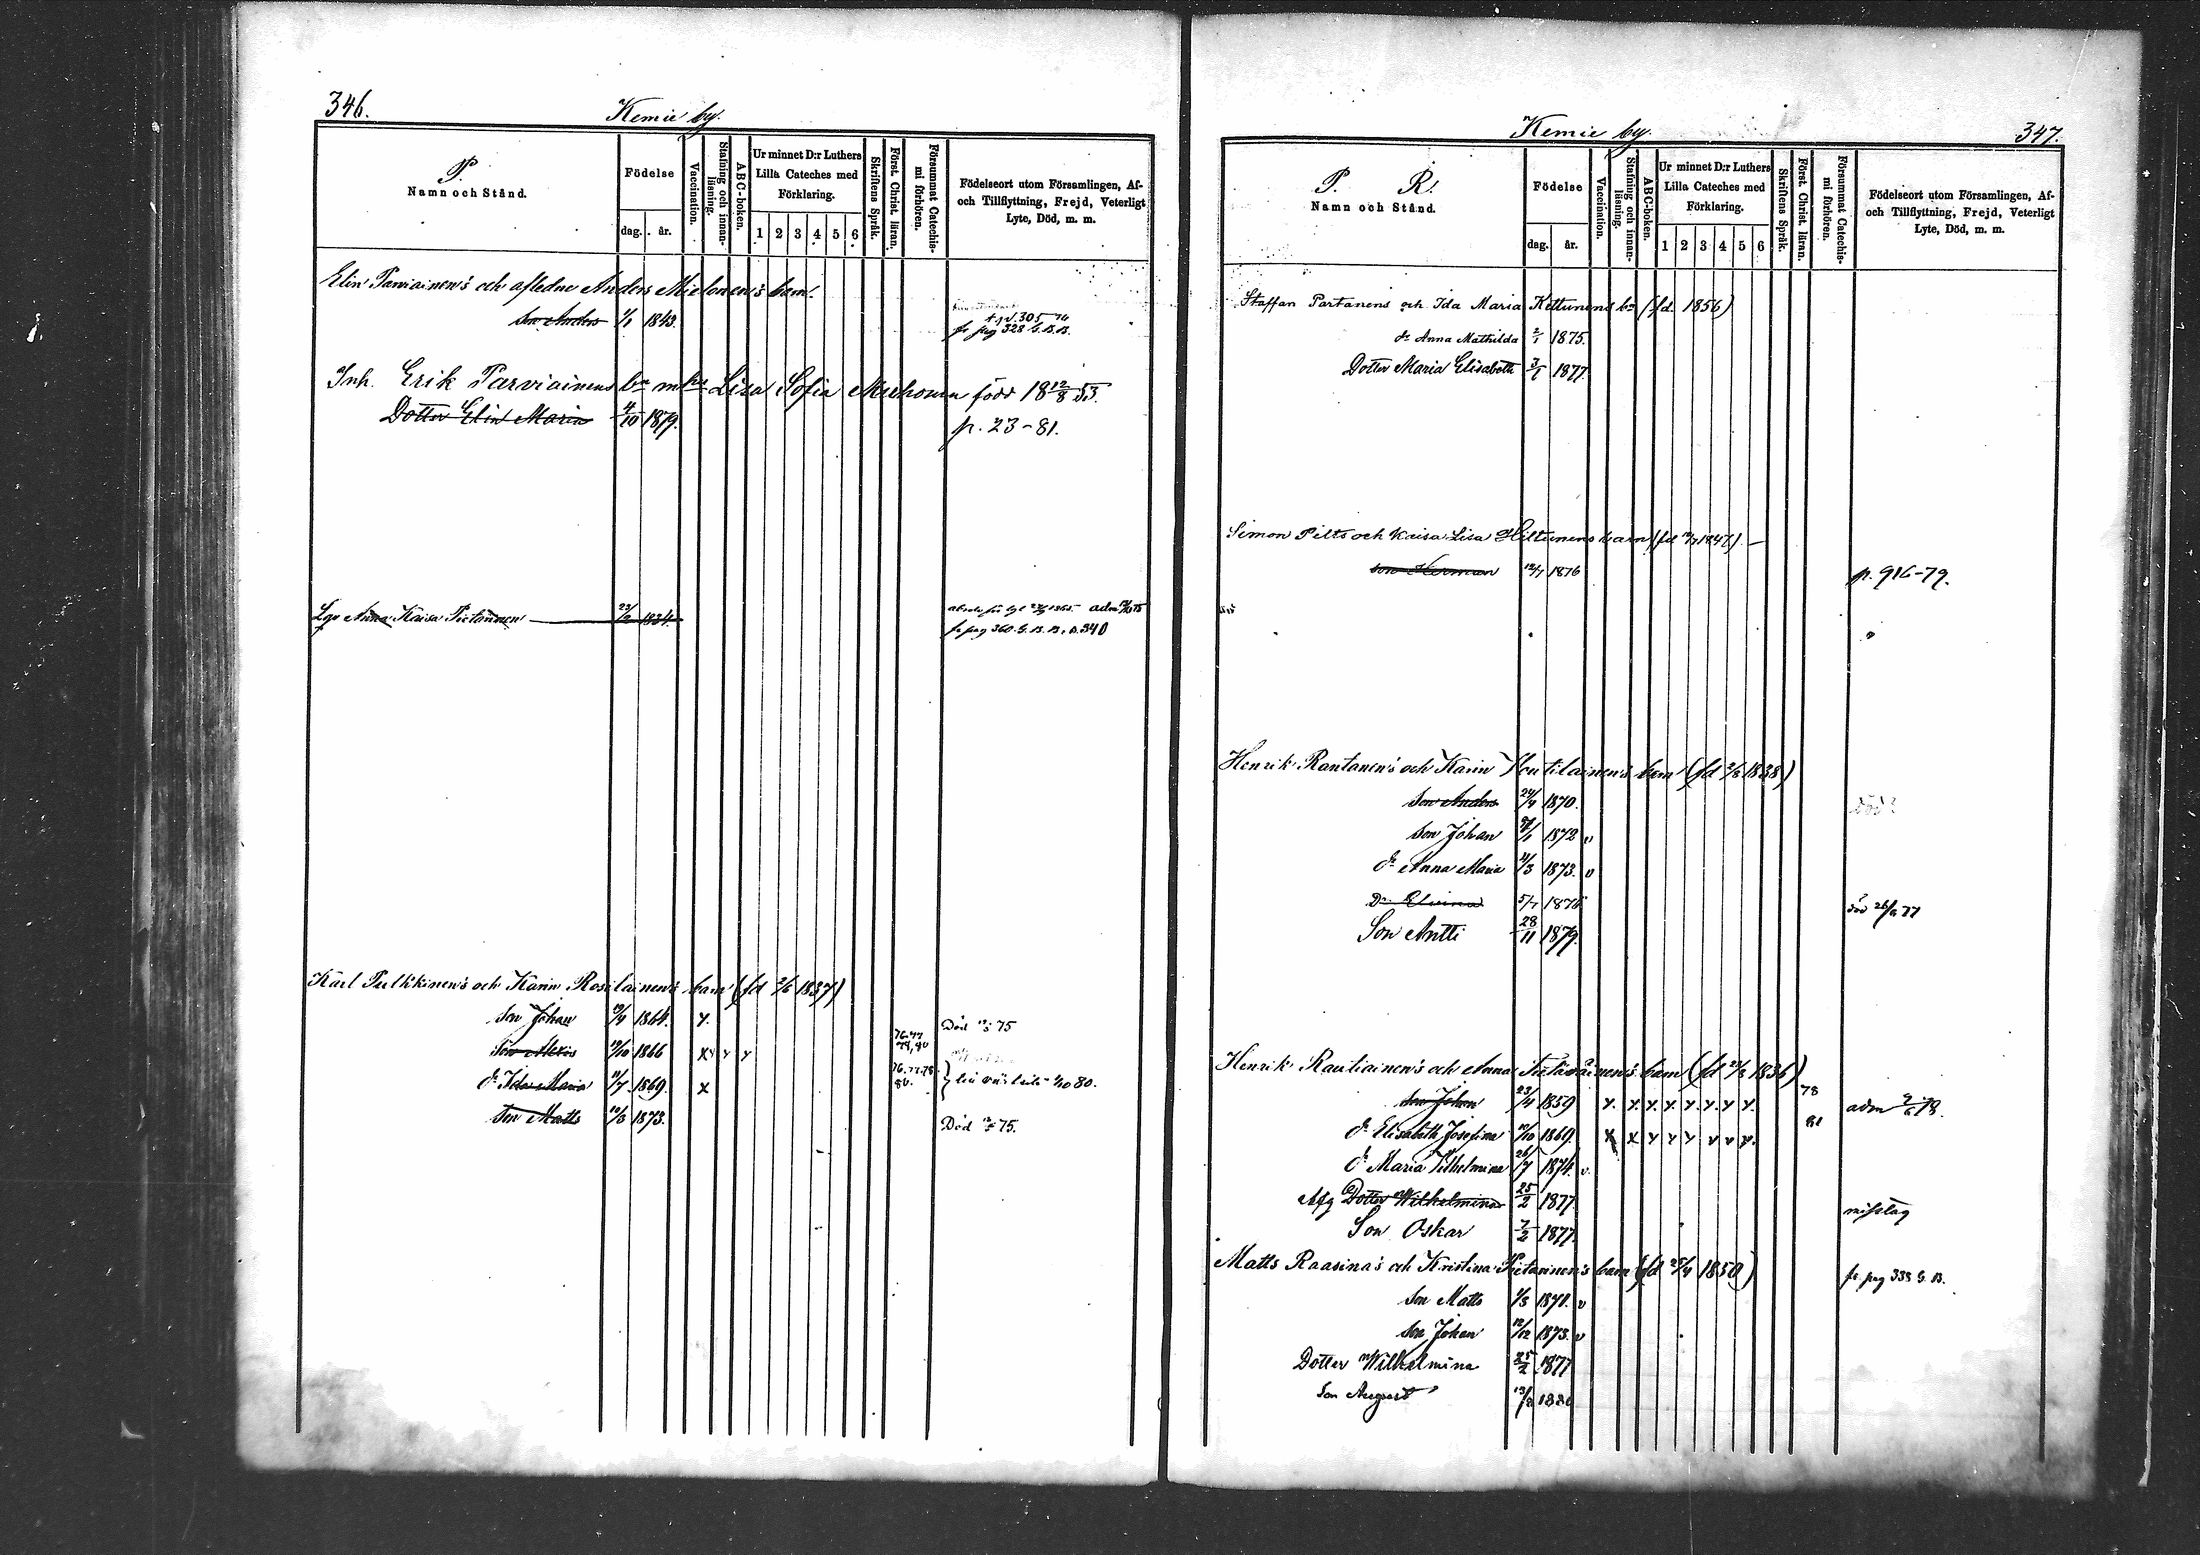 346.
Kemie by.
P.
Namn och Stånd.
Födelse
dag. år.
Vaccination.
Stafning och innan-läsning.
ABC-boken.
Ur minnet D:r Luthers
Lilla Cateches med
Förklaring.
1 2 3 4 5 6
Skriftens Språk.
Först. Christ. läran.
Försummat Catechis-mi förhören.
Födelseort utom Församlingen, Af-
och Tillflyttning, Frejd, Veterligt
Lyte, Död, m. m.
Elin Parviainen's och afledne Anders Mielonen's barn.
Son Anders 1/1 1843.
fr pag 328 G.B.B.
Inh. Erik Parviainens bn m hu Lisa Sofia född 18 12/8 53.
Dotter Elin Maria 4/10 1879. p. 23-81.
Lgo Anna Kaisa Pietarinen 23/2 1834.
fr pag 360. G.B.B. p. 340
Karl Pulkkinen's och Karin Rosilainen's barn (fd 2/6 1837)
Son Johan 19/4 1864. Y. Död 75
Son Alexis 19/10 1866 X Y Y Y 76.77 79,80
dr Ida Maria 11/7 1869. X 76.77.78 80. 80.
Son Matts 10/3 1873. Död 75.
Kemie by. 347.
P. R.
Namn och Stånd.
Födelse
dag. år.
Vaccination.
Stafning och innan-läsning.
ABC-boken.
Ur minnet D:r Luthers
Lilla Cateches med
Förklaring.
1 2 3 4 5 6
Skriftens Språk.
Först. Christ. läran.
Försummat Catechis-mi förhören.
Födelseort utom Församlingen, Af-
och Tillflyttning, Frejd, Veterligt
Lyte, Död, m. m.
Staffan Partanens och Ida Maria Kettunens bn (fd. 1856)
dr Anna Mathilda 2/1 1875.
Dotter Maria Elisabeth 3/1 1877.
Simon Pilts och Kaisa Lisa Hiltunens barn (fd 1847)
son Herman 12/7 1876 p. 916-79.
Henrik Rantanen's och Karin Hontilainen's barn (fd 2/3 1838)
Son Anders 24/4 1870.
Son Johan 1872 v
dr Anna Maria 4/3 1873. v
Dr Elvina 5/7 1876 död 26/ 77
Son Antti 28/11 1879.
Henrik Rautiainen's och Anna barn (fd 1836)
Son Johan 23/4 1859 Y. Y. Y. Y. Y. Y. Y. Y. 78 adm 78.
dr Elisabeth Josefina 12/10 1869. X X Y Y Y v v v. 81
dr Maria Vilhelmina 26/7 1874. v.
Afg Dotter Wilhelmina 25/2 1877. misstag
Son Oskar 7/2 1877.
Matts Raasina's och Kristina Pietarinen's barn (fd 25/4 1850) fr. pag 338 G. B.
Son Matts 1/3 1871. v
Son Johan 12/12 1873. v
Dotter Wilhelmina 25/2 1877
Son August 13/2 1880